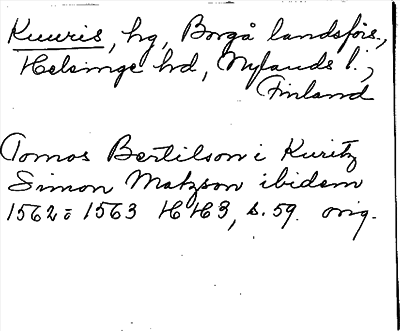 Kuuris, hg, Borgå landsförs.,
Helsinge hd, Nylands l.,
Finland
Tomas Bertilson i Kuritz
Simon Matzson ibidem
1562 o 1563 HH3, s. 59. orig.